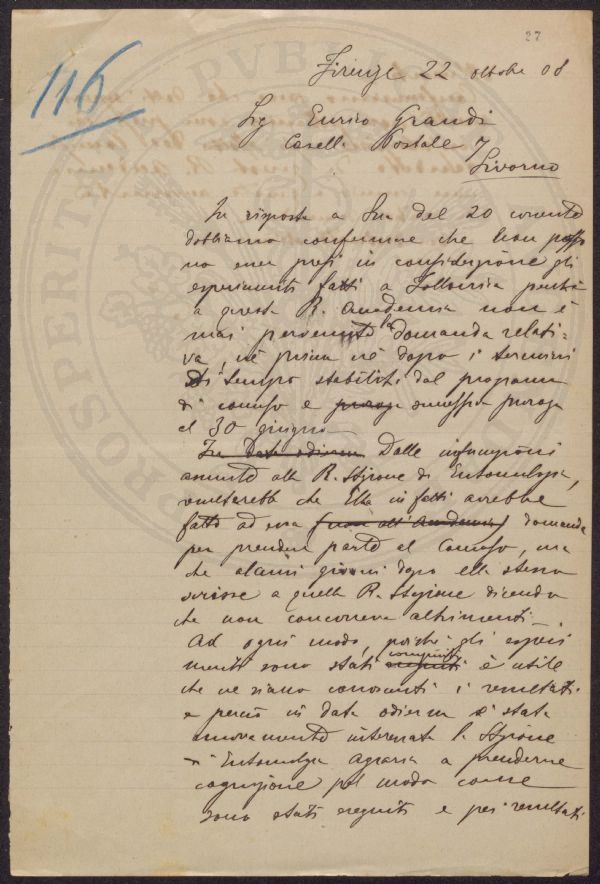 27
116
Firenze 22 ottobre 08
Sig Enrico Grandi
Casella Postale 7
Livorno
In risposta a Sua del 20 corrente
dobbiamo confermare che non posso
no esser presi in considerazione gli
esperimenti fatti a Follonica perchè
a questa R. Accademia non è
mai pervenuta la domanda relati=
va, nè prima nè dopo i termini
di tempo stabiliti dal programma
di concorso e proroga successiva proroga
al 30 giugno
In data odierna Dalle informazioni
assunte alla R. Stazione di Entomologia,
risulterebbe che Ella infatti avrebbe
fatto ad essa (non all'Accademia) domanda
per prendere parte al Concorso, ma
che alcuni giorni dopo ella stessa
scrisse a quella R. Stazione dicendo
che non concorreva altrimenti.
Ad ogni modo, poichè gli esperi
menti sono stati eseguiti compiuti è utile
che ne siano conosciuti i resultati
e perciò in data odierna è stata
nuovamente interessata la Stazione
di Entomologia Agraria a prenderne
cognizione pel modo come
sono stati eseguiti e pei resultati
PVBLICAE
PROSPERITATI